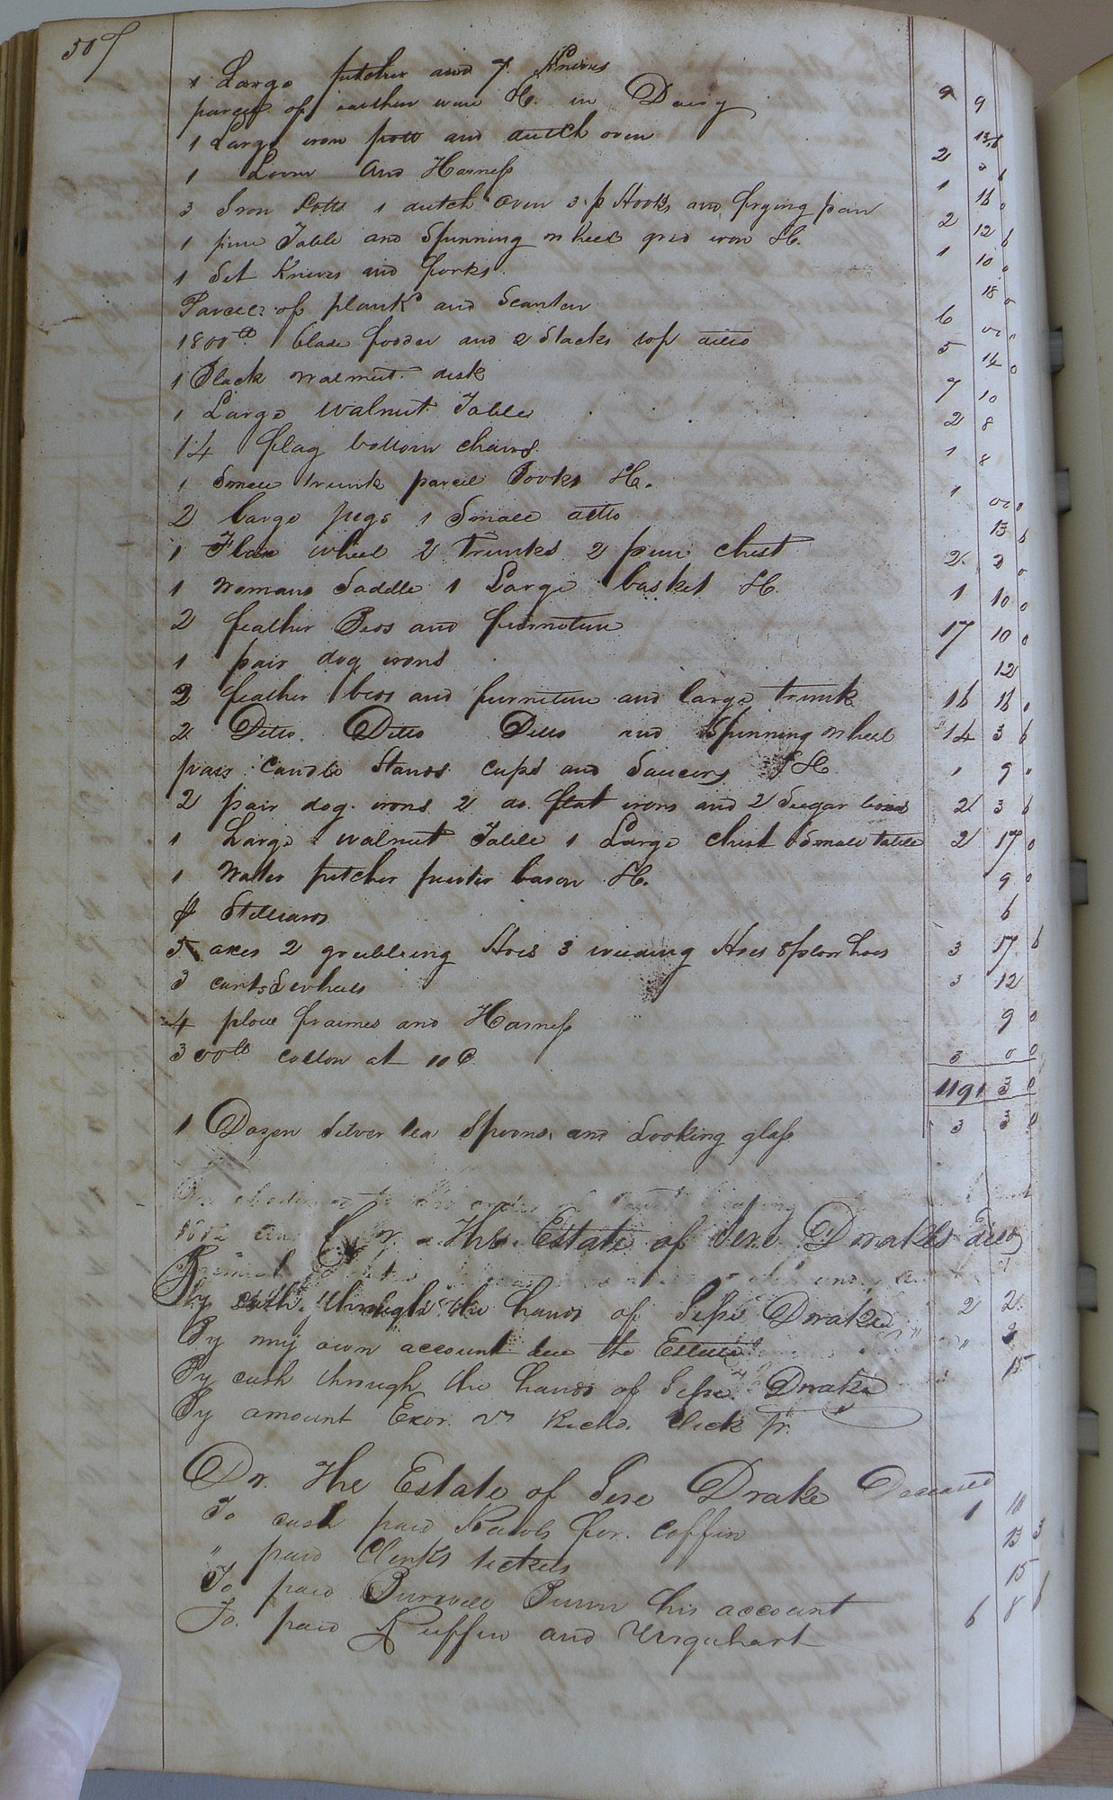 507
1 Large pitcher and 7 Knives
parcel of earthen ware &c. in Dairy 9 9
1 Large iron pott and dutch oven 13 6
1 Loom and Harness 2 2 6
3 Iron Potts 1 dutch oven 3 p Hooks and frying pan 1 16 0
1 pine Table and Spinning wheel grid iron &c. 2 12 6
1 Set Knives and forks 1 10 0
Parcel of plank and Scantin 18 0
1800 lb blade fodder and 2 Stacks top ditto 6
1 Black walnut desk 5 14 0
1 Large walnut Table 7 10
14 flag bottom chairs 2 8
1 Small trunk parcel Books &c. 1 8
2 large jugs 1 Small ditto 1
1 Flax wheel 2 Trunks 2 pine chest 13 6
1 Womans Saddle 1 Large basket &c. 2 2 0
2 feather Beds and furniture 1 10 0
1 pair dog irons 17 10 0
2 feather beds and furniture and large trunk 12
2 Ditto Ditto Ditto and Spinning wheel 16 16 0
pair candle Stands cups and Saucers &c. 14 3 6
2 pair dog irons 2 do. flat irons and 2 Sugar boxes 1 9
1 Large walnut Table 1 Large chest Small table 2 3 6
1 Water pitcher pewter bason &c. 2 17 0
Stilliards 9 0
5 axes 2 grubbing Hoes 3 weeding Hoes 8 plow hoes 6
3 carts & wheels 3 17 6
4 plow fraimes and Harness 3 12
300 lb cotton at 10 9 0
3 0 0
1191 3 0
1 Dozen Silver tea Spoons and Looking glass 3 3 0
Cr. The Estate of Jere Drakes
By cash through the hands of Jesse Drake 2 2
By my own account due the Estate
By cash through the hands of Jesse Drake 15
By amount Exor. vs Richd. Jr.
Dr. The Estate of Jere Drake Deceased
To cash paid for coffin 1 10
" paid Clerks tickets 13 3
To paid Burwell Bunn his account 15
To. paid Ruffin and Urquhart 6 8 6